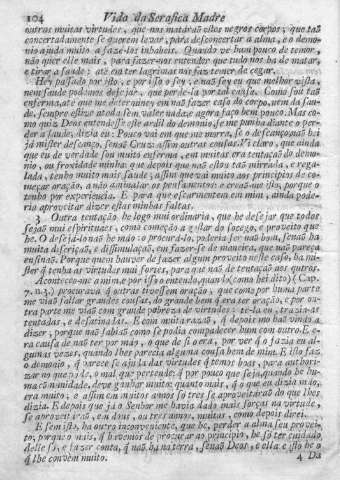 104 Vida da Serafica Madre
outras muitas virtudes, que nos matarão estes negros corpos, que taõ
concertadamente se querem levar, para desconcertar a alma, e o demo-
nio ajuda muito a fazelos inhabeis. Quando ve hum pouco de temor,
não quer elle mais, para fazer-nos entender que tudo nos ha de matar,
e tirar a saude: até em ter lagrimas nos faz temer de cegar.
Hey passado por isto, e por isso o sey, e naõ sey eu que melhor vista,
nem saude podemos desejar, que perdela por tal causa. Como sou taõ
enferma, até que me determiney em naõ fazer caso do corpo, nem da sau-
de, sempre estive atada sem valer nada: e agora faço bem pouco. Mas co-
mo quiz Deos entendesse este ardil do demonio, se me punha diante o per-
der a saude, dizia eu: Pouco vai em que me morra, se o descanço, naõ hei
já mister descanço, senaõ Cruz: assim outras cousas. Vi claro, que ainda
que eu de verdade sou muito enferma, em muitas era tentaçaõ do demo-
nio, ou froxidade minha: que depois que naõ estou taõ mirada, e rega-
lada, tenho muito mais saude; assim que vai muito aos principios de co-
meçar oraçaõ, a não animalar os pensamentos: e creaõ-me isto, porque o
tenho por experiencia. E para que escarmentem em mim, ainda pode-
ria aproveitar dizer estas minhas faltas.
3 Outra tentaçaõ, he logo mui ordinaria, que he desejar que todos
sejaõ mui espirituaes, como começaõ a gostar do socego, e proveito que
he. O desejalo naõ he máo: o procuralo, poderia ser naõ bom, senaõ ha
muita discriçaõ, e dissimulaçaõ, em fazer-se de maneira, que naõ pareça
ensinaõ. Porque quem houver de fazer algum proveito neste caso, ha mi-
ster q̃ tenha as virtudes mui fortes, para que naõ dé tentaçaõ aos outros.
Aconteceo-me a mim, e por isso o entendo, quando (como hei dito) (Cap.
7. n.3.) procurava q̃ outras tivessem oraçaõ, que como por huma parte
me viaõ fallar grandes cousas, do grande bem q̃ era ter oração, e por ou-
tra parte me viaõ com grande pobreza de virtudes, telas eu, trazia-as
tentadas, e desatinadas. E com muita razaõ, q̃ depois mo haõ vindo a
dizer, porque naõ sabiaõ como se podia compadecer hum com outro. E e-
ra causa de naõ ter por máo, o que de si o era, por ver q̃ o fazia eu al-
gumas vezes, quando lhes parecia alguma cousa bem de mim. E isso faz
o demonio, q̃ parece se ajuda das virtudes q̃ temos boas, para authori-
zar no que pode, o mal que pertende: q̃ por pouco que seja, quando he hu-
ma comunidade, deve ganhar muito: quanto mais, q̃ o que eu dizia máo,
era muito; e assim em muitos annos só tres se aproveitaraõ do que lhes
dizia. E depois que já o Senhor me havia dado mais forças na virtude,
se aproveitaraõ, em dous, ou tres annos, muitas, como depois direi.
E sem isto, ha outro inconveniente, que he, perder a alma seu provei-
to; porque o mais, q̃ havemos de procurar ao principio, he só ter cuidado
della só, e fazer conta, q̃ naõ ha na terra, senaõ Deos, e ella: e isso he o
q̃ lhe convem muito.
4 Da